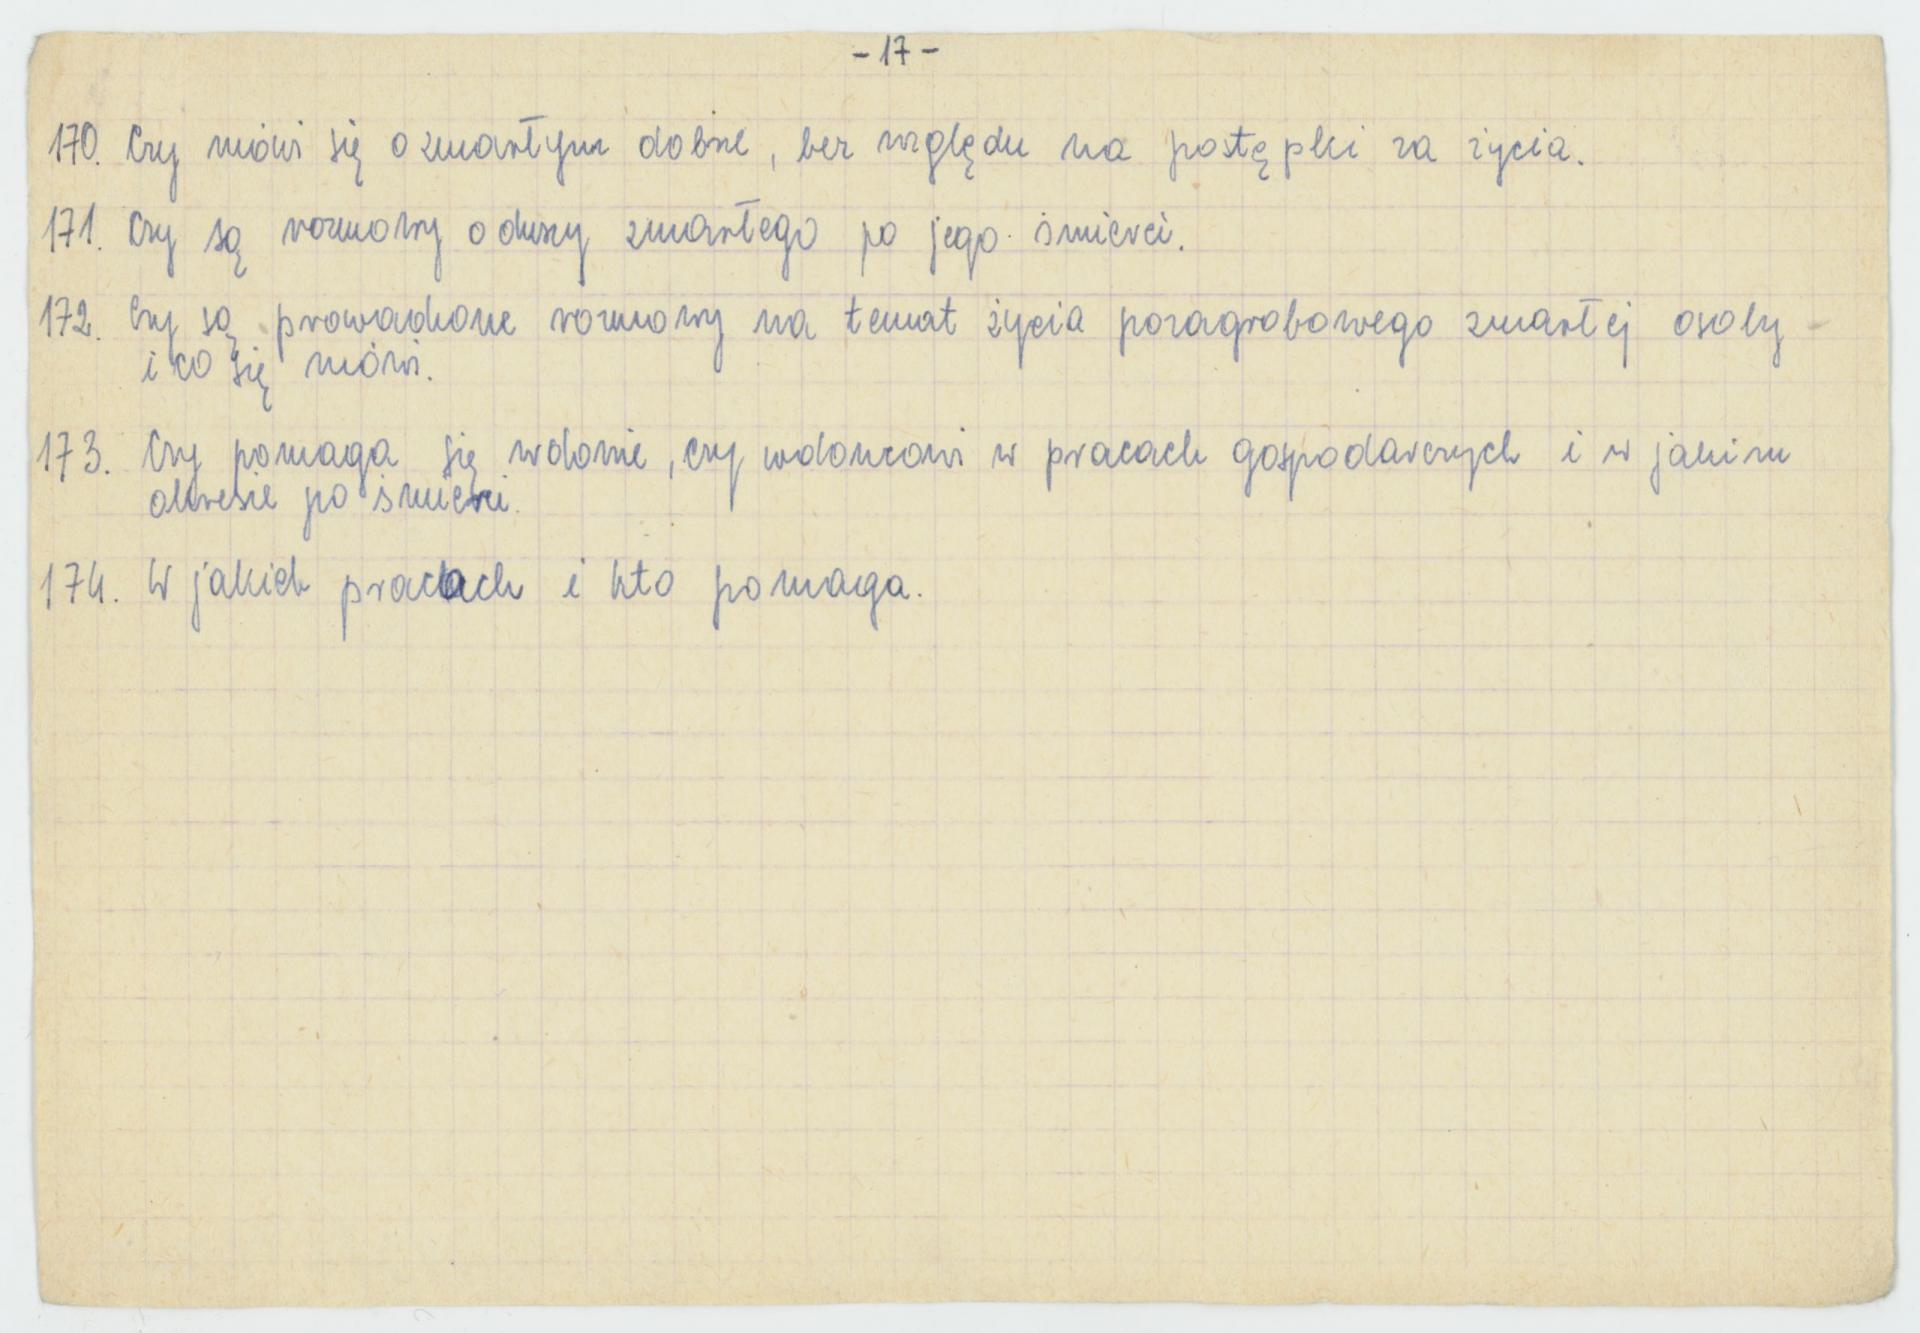 - 17 -
170. Czy mówi się o zmarłym dobrze, bez względu na postępki za życia.
171. Czy są rozmowy o duszy zmarłego po jego śmierci.
172. Czy są prowadzone rozmowy na temat życia pozagrobowego zmarłej osoby -
i co się mówi.
173. Czy pomaga się wdowie, czy wdowcowi w pracach gospodarczych i w jakim
okresie po śmierci.
174. W jakich pracach i kto pomaga.